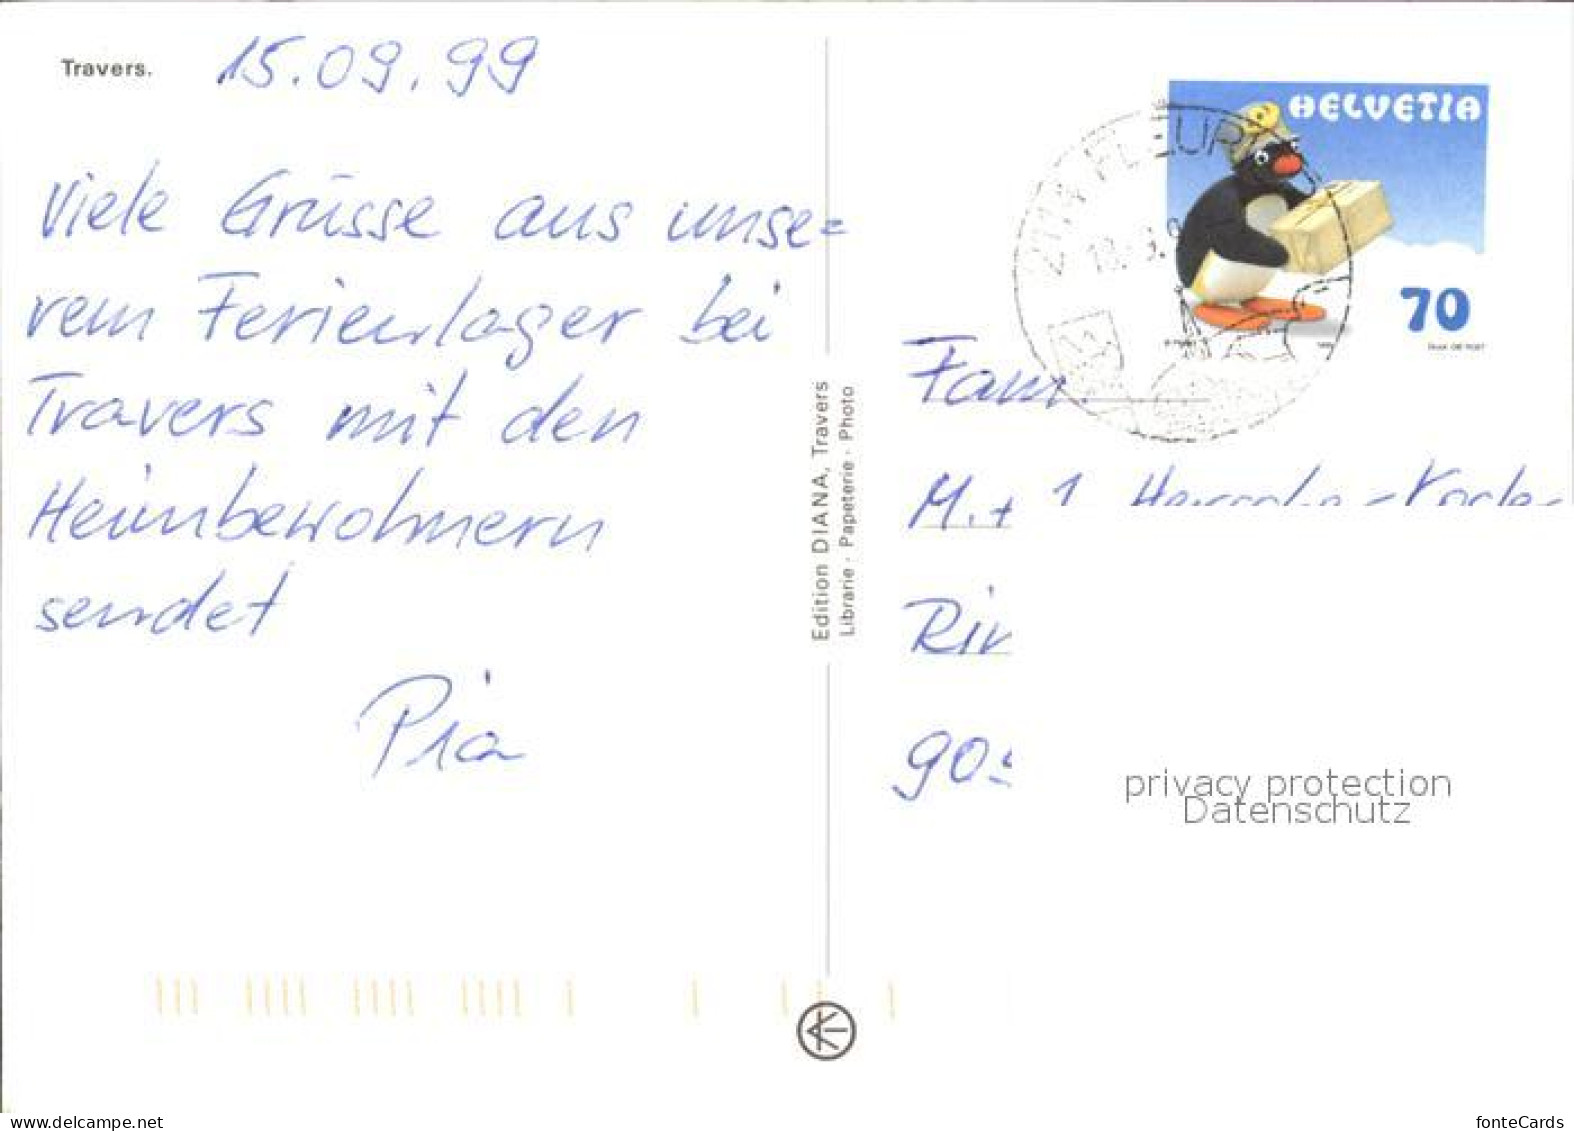 Travers.
15.09.99
Viele Grüsse aus unse=
rem Ferienlager bei
Travers mit den
Heimbewohnern
sendet
Pia
Edition DIANA, Travers
Librairie · Papeterie · Photo
HELVETIA
70
FLEURI
Fam.
M. +
privacy protection
Datenschutz
www.delcampe.net
fonteCards